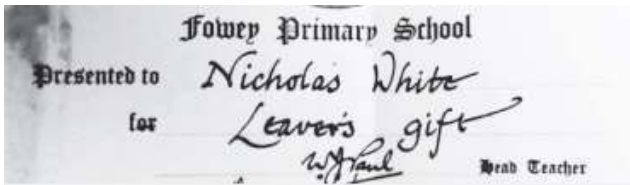 Fowey Primary School
Presented to Nicholas White
for Leavers gift
W J Paul Head Teacher